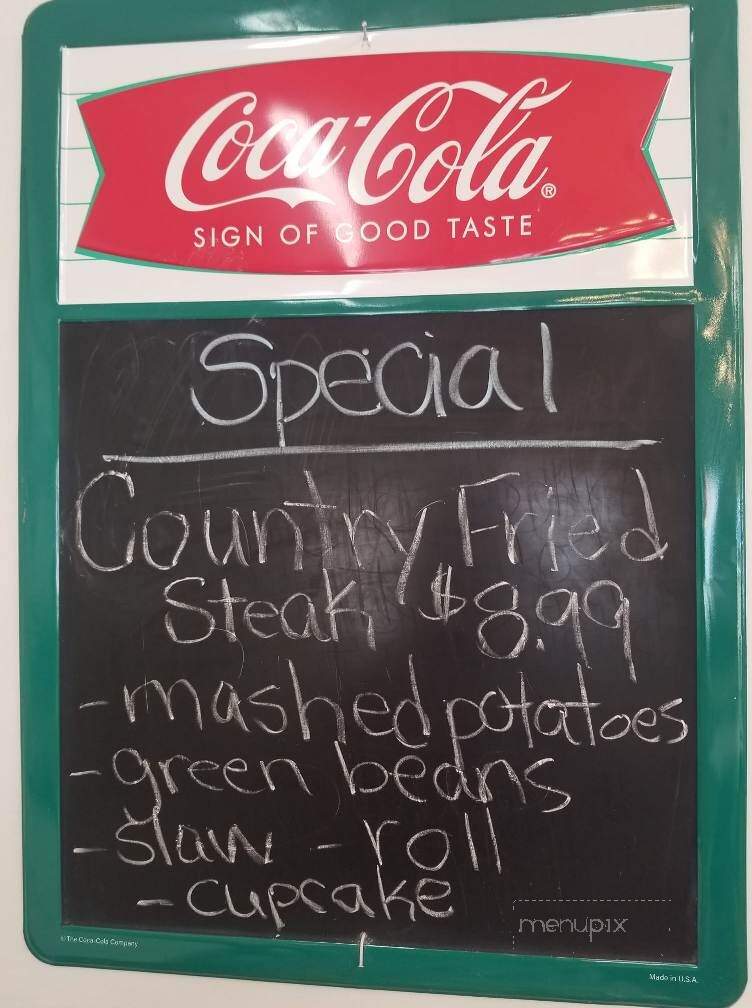 Coca-Cola®
SIGN OF GOOD TASTE
Special
Country Fried
Steak $8.99
- mashed potatoes
- green beans
- slaw - roll
- cupcake
menupix
© The Coca-Cola Company
Made in U.S.A.